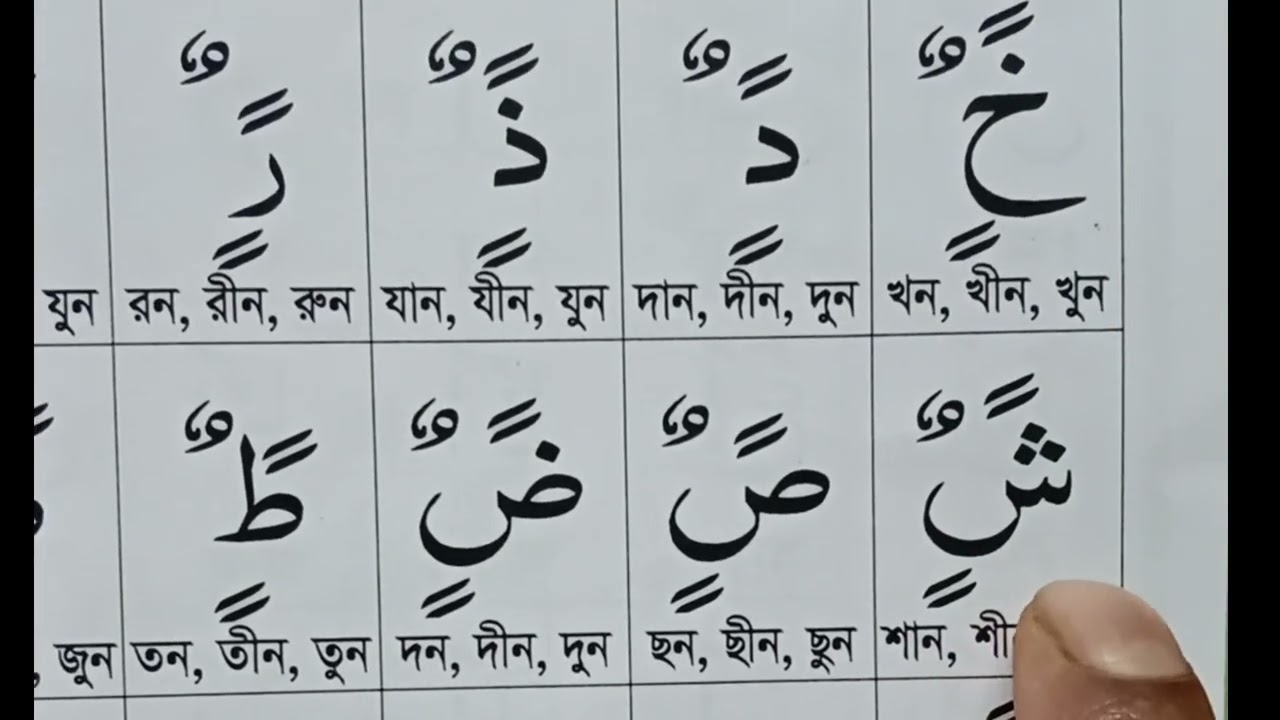 خً خٍ خٌ دً دٍ دٌ ذً ذٍ ذٌ رً رٍ رٌ
যুন রন, রীন, রুন যান, যীন, যুন দান, দীন, দুন খন, খীন, খুন
شً شٍ شٌ صً صٍ صٌ ضً ضٍ ضٌ طً طٍ طٌ
জুন তন, তীন, তুন দন, দীন, দুন ছন, ছীন, ছুন শান,